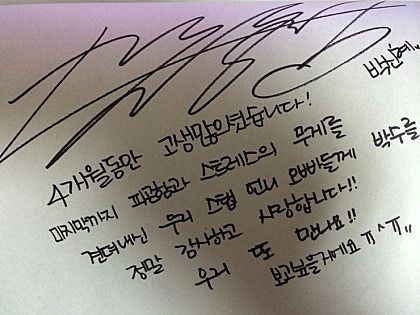 박신혜
4개월동안 고생많았습니다!
마지막까지 피곤함과 스트레스의 무게를
견뎌내신 우리 스탭 언니 오빠들께 박수를
정말 감사하고 사랑합니다!!
우리 또 만나요!!
보고싶을거에요 ㅠ^ㅠ,,